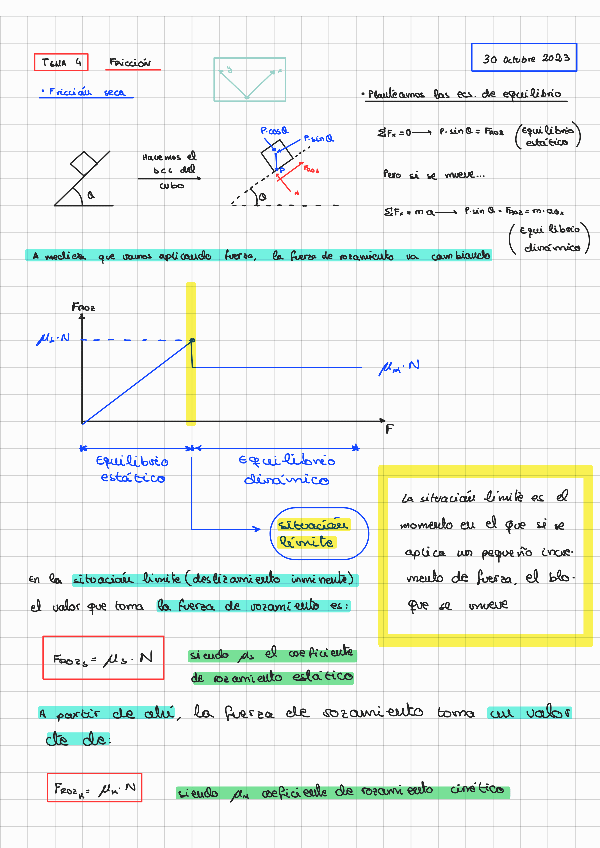 TEMA 4 Fricción
30 Octubre 2023
• Fricción seca
y x
• Planteamos las ecs. de equilibrio
ΣFx = 0 → P·sinθ = FROZ (Equilibrio estático)
Pero si se mueve...
ΣFx = m·a → P·sinθ - FROZ = m·aGx (Equilibrio dinámico)
θ
Hacemos el
DCL del
cubo
P·cosθ
P·sinθ
P
FROZ
N
θ
A medida que vamos aplicando fuerza, la fuerza de rozamiento va cambiando
FROZ
μs·N
μk·N
F
Equilibrio
estático
Equilibrio
dinámico
situación
límite
La situación límite es el
momento en el que si se
aplica un pequeño incre-
mento de fuerza, el blo-
que se mueve
En la situación límite (deslizamiento inminente)
el valor que toma la fuerza de rozamiento es:
FROZs = μs · N
siendo μs el coeficiente
de rozamiento estático
A partir de ahí, la fuerza de rozamiento toma un valor
cte de:
FROZk = μk · N
siendo μk coeficiente de rozamiento cinético